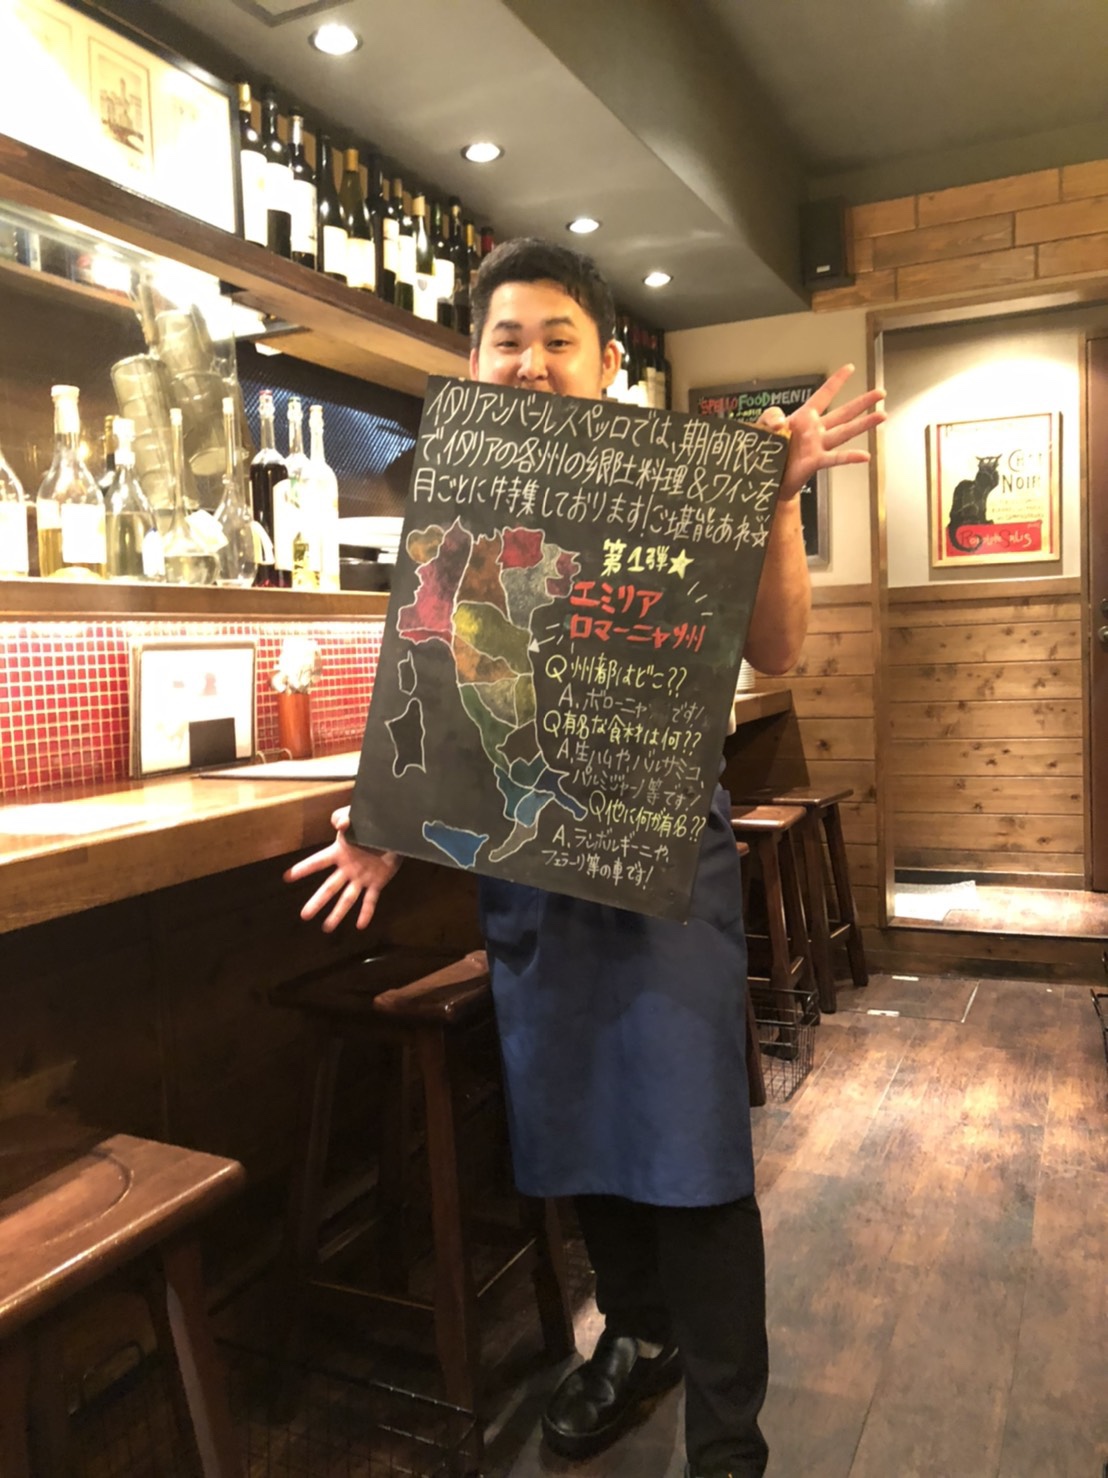 イタリアンバールスペッロでは、期間限定
でイタリアの各州の郷土料理&ワインを
月ごとに特集しております!ご堪能あれ☆
第1弾★
エミリア
ロマーニャ州
Q 州都はどこ??
A、ボローニャ です!
Q有名な食材は何??
A、生ハムや、バルサミコ
パルミジャーノ等です!
Q他に何が有名??
A、ランボルギーニや、
フェラーリ等の車です!
SPELLO FOOD MENU
CHAT
NOIR